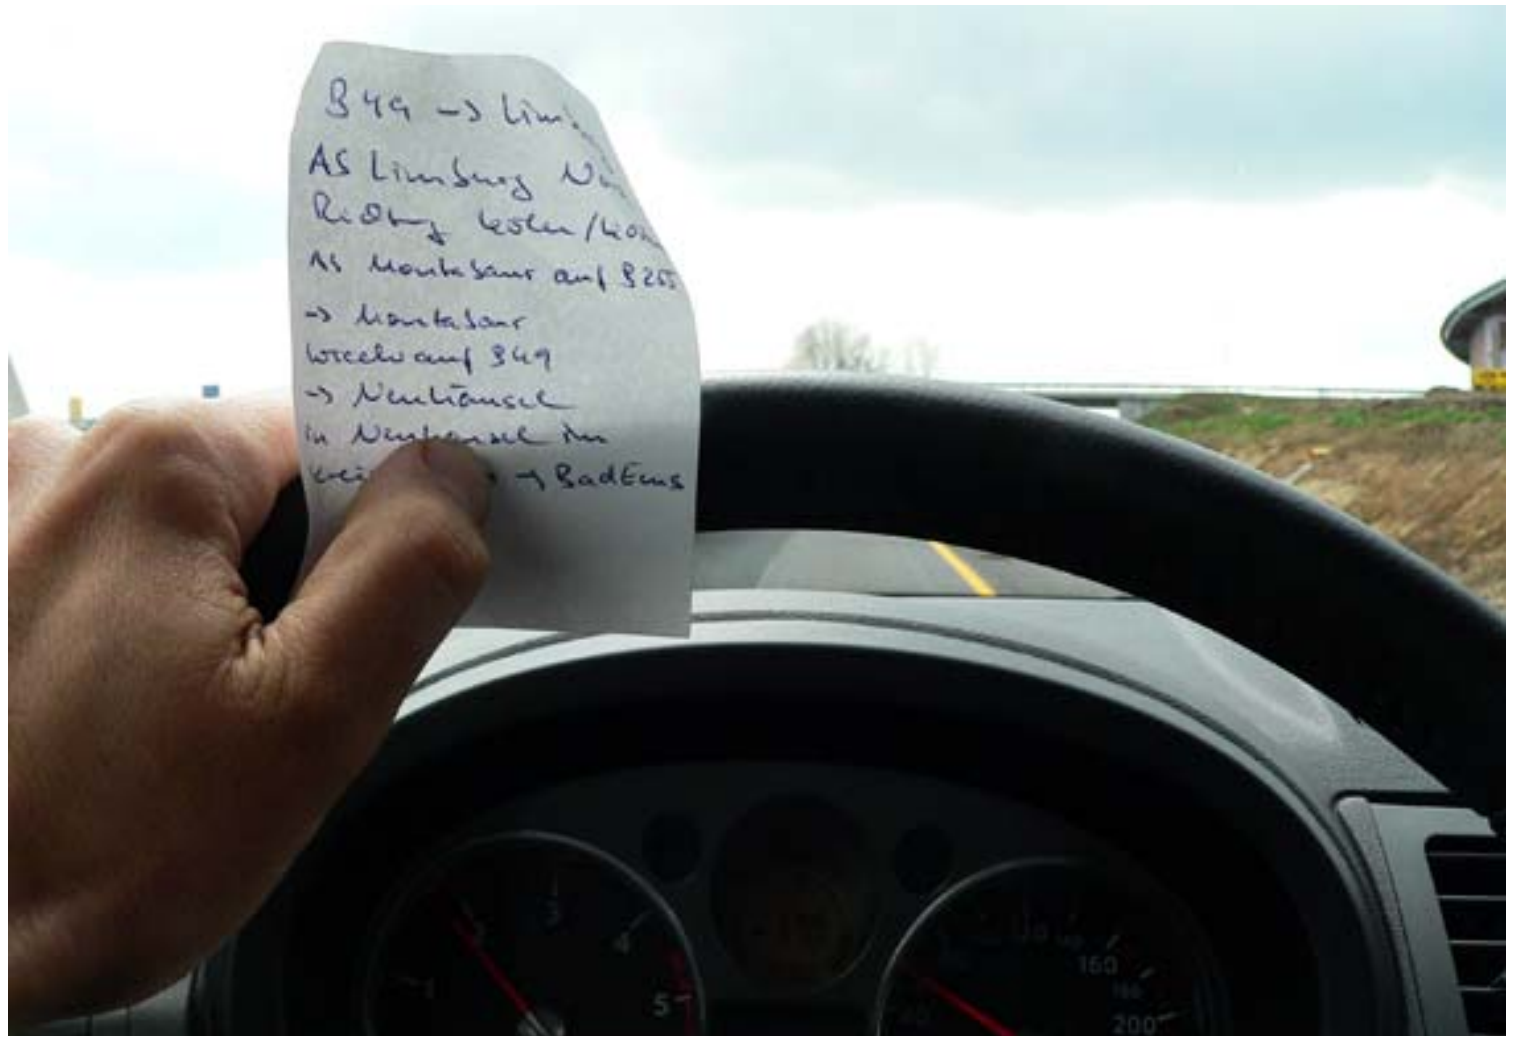 B49 →
AS Limburg
Richtung Köln/
AS Montabaur auf B255
→ Montabaur
wieder auf B49
→ Neuhäusel
in Neuhäusel im
→ Bad Ems
1
2
3
4
5
160
200